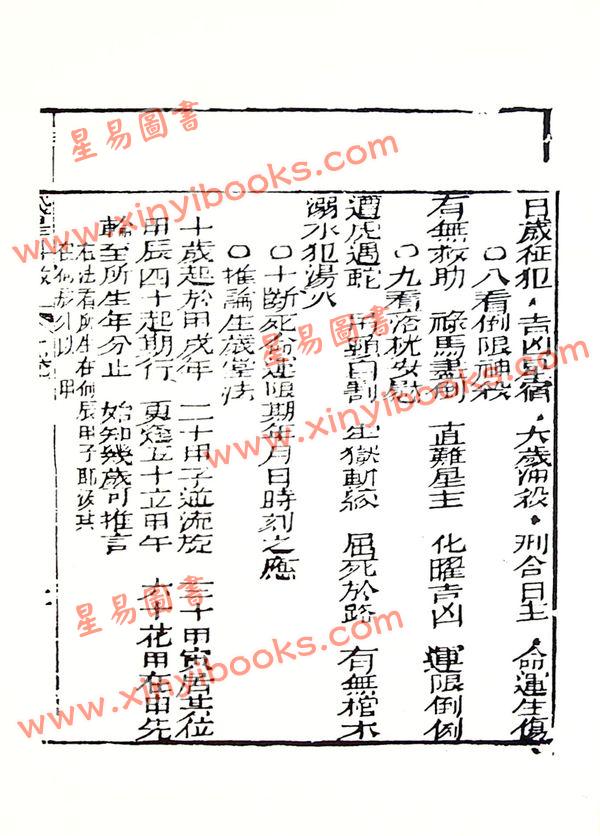 日歲征犯 吉凶星宿 大歲 刑合日主 命運生傷
○八看倒限神殺
有無救助 祿馬 倒 直難星主 化曜吉凶 運限倒例
○九看浴
遭虎遇蛇 自割 牢獄斬絞 屈死於路 有無棺木
溺水犯湯火
○十斷死 運限期年月日時刻之應
○推論生歲 法
十歲起於甲戌年 二十甲子逆流旋 三十甲寅 其位
甲辰四十起期行 更 五十立甲午 六十花甲在申先
輪至所生年分止 始知幾歲可推言
右法看所生在何辰甲子
在何
星易圖書
www.xinyibooks.com
星易圖書
www.xinyibooks.com
星易圖書
www.xinyibooks.com
星易圖書
www.xinyibooks.com